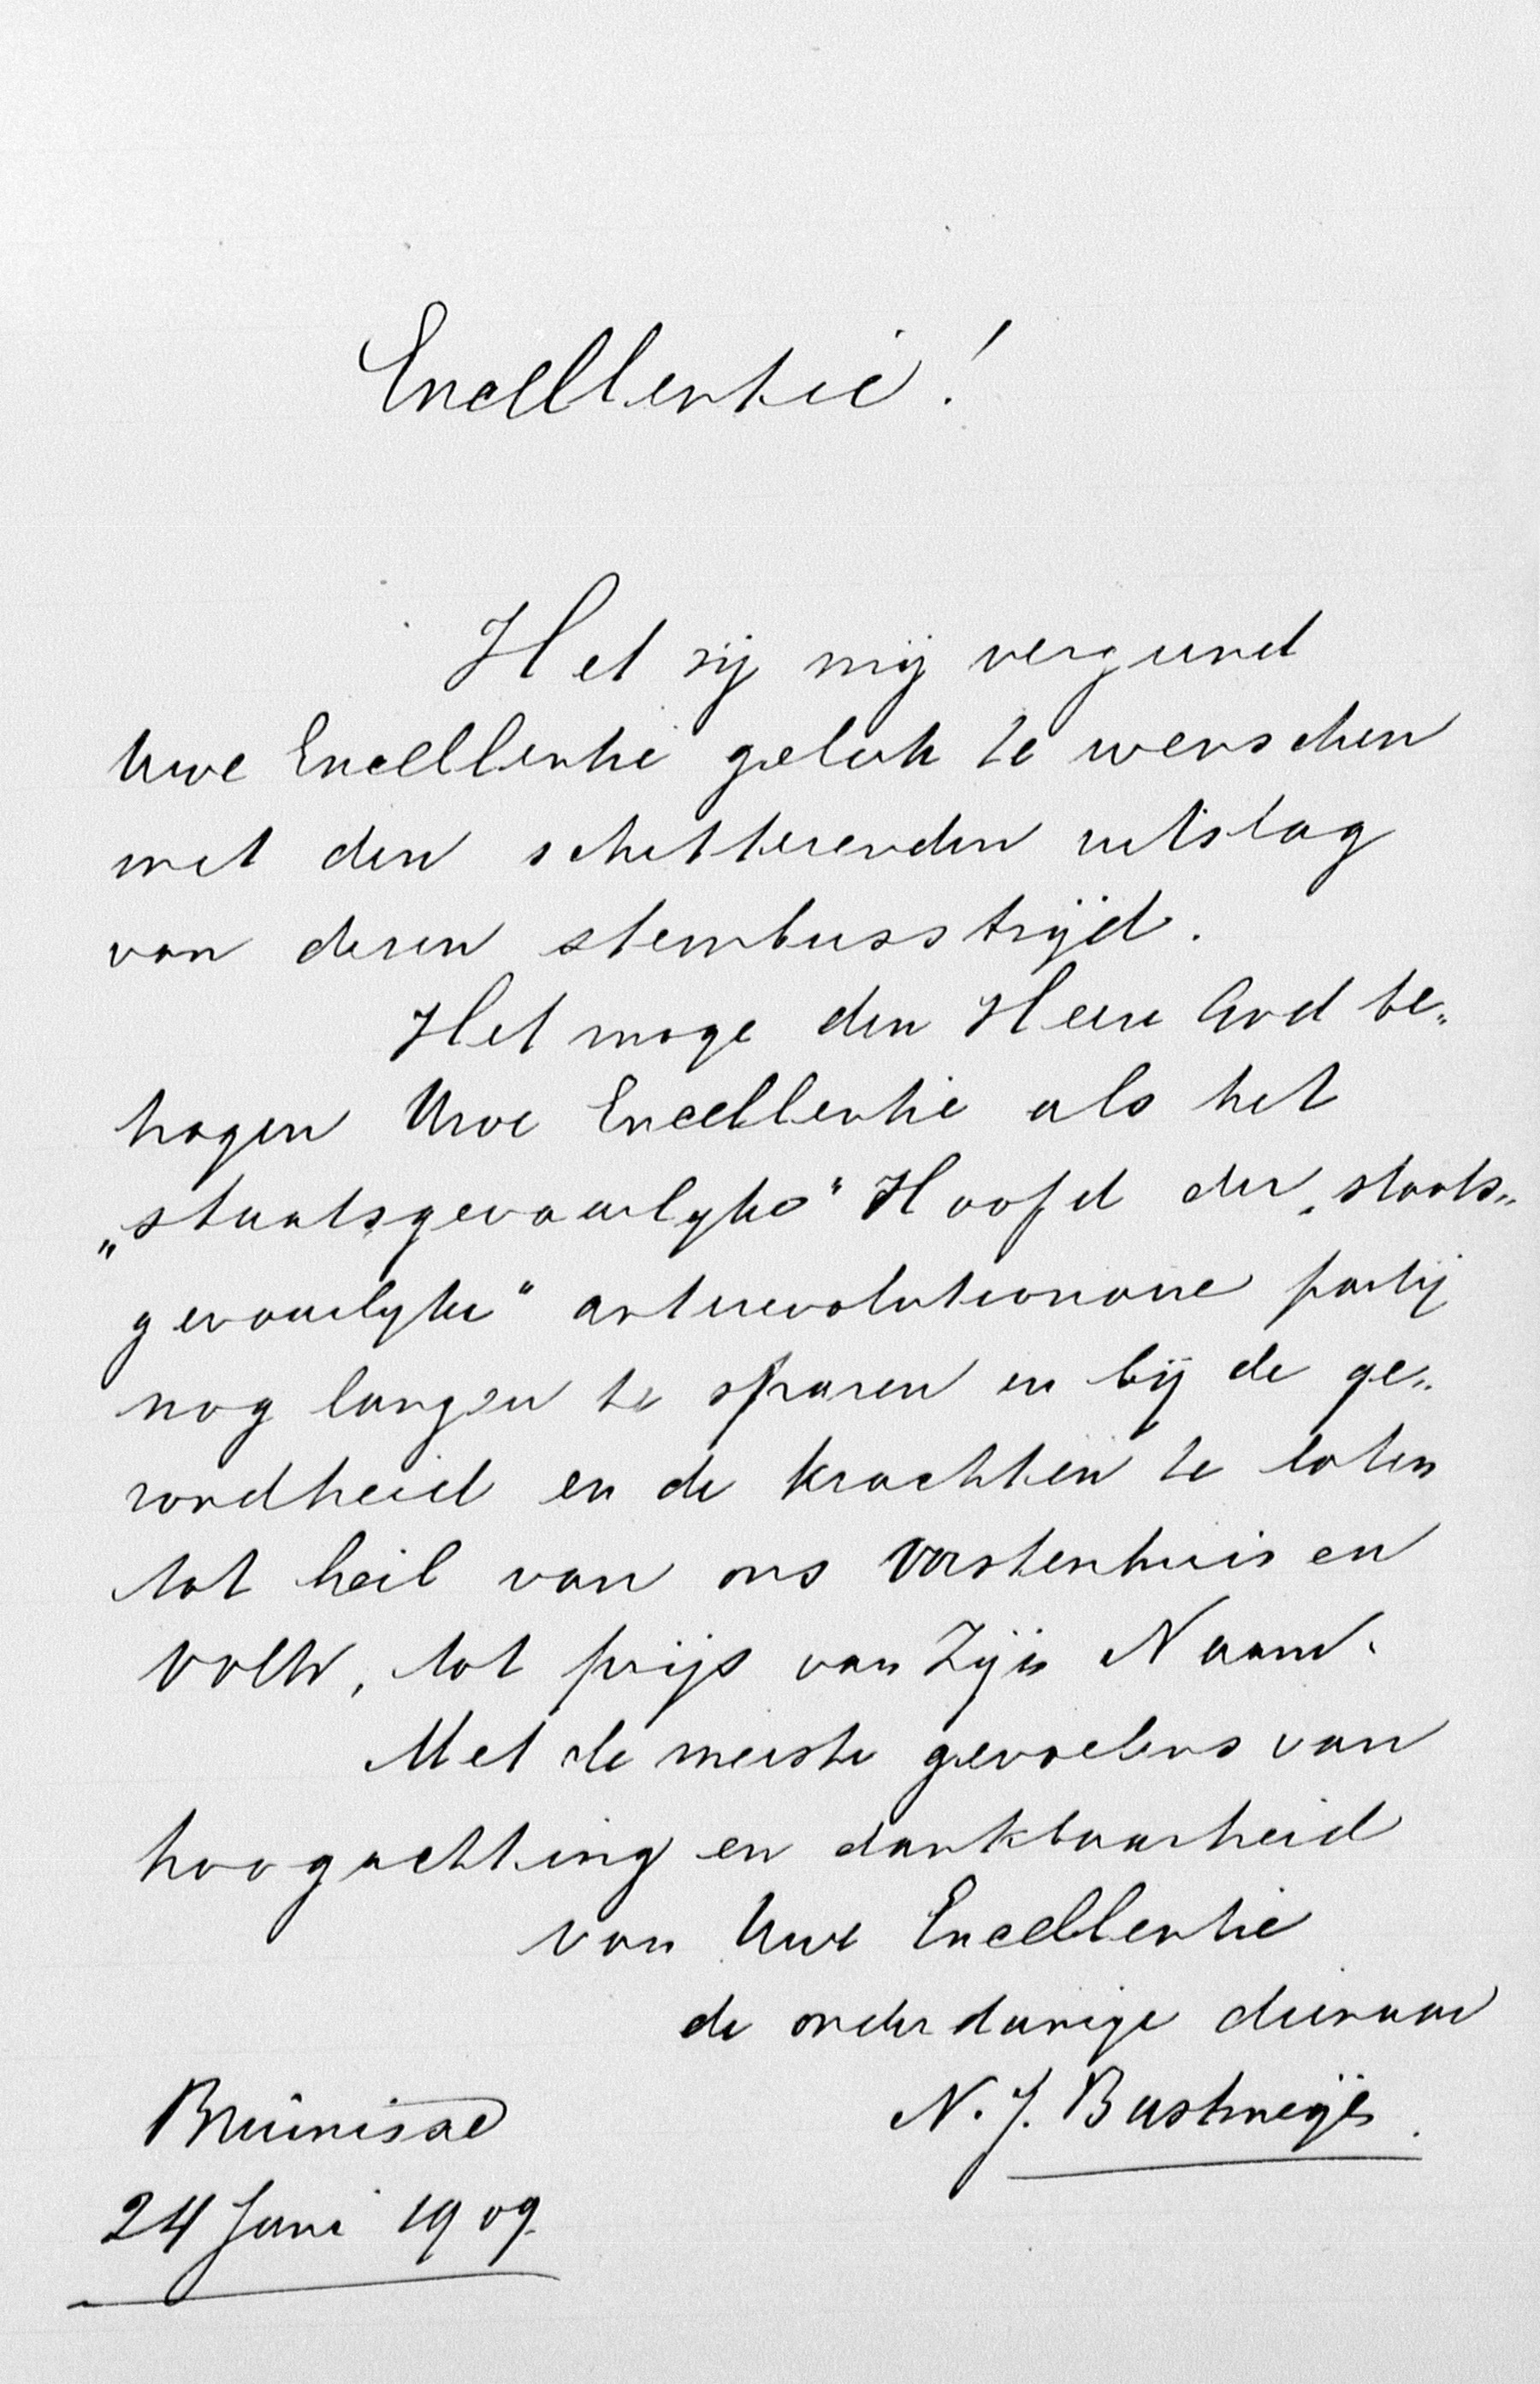 Excellentie!
Het zij mij vergund
Uwe Excellentie geluk te wenschen
met den schitterenden uitslag
van dezen stembusstrijd.
Het moge den Heere God be„
hagen Uwe Excellentie als het
„staatsgevaarlijke" Hoofd der „staats„
gevaarlijke" antirevolutionaire partij
nog langer te sparen en bij de ge„
zondheid en de krachten te laten
tot heil van ons Vorstenhuis en
Volk, tot prijs van Zijn Naam.
Met de meeste gevoelens van
hoogachting en dankbaarheid
van Uwe Excellentie
de onderdanige dienaar
N. J. Bustmeijer.
Bruinisse
24 Juni 1909.